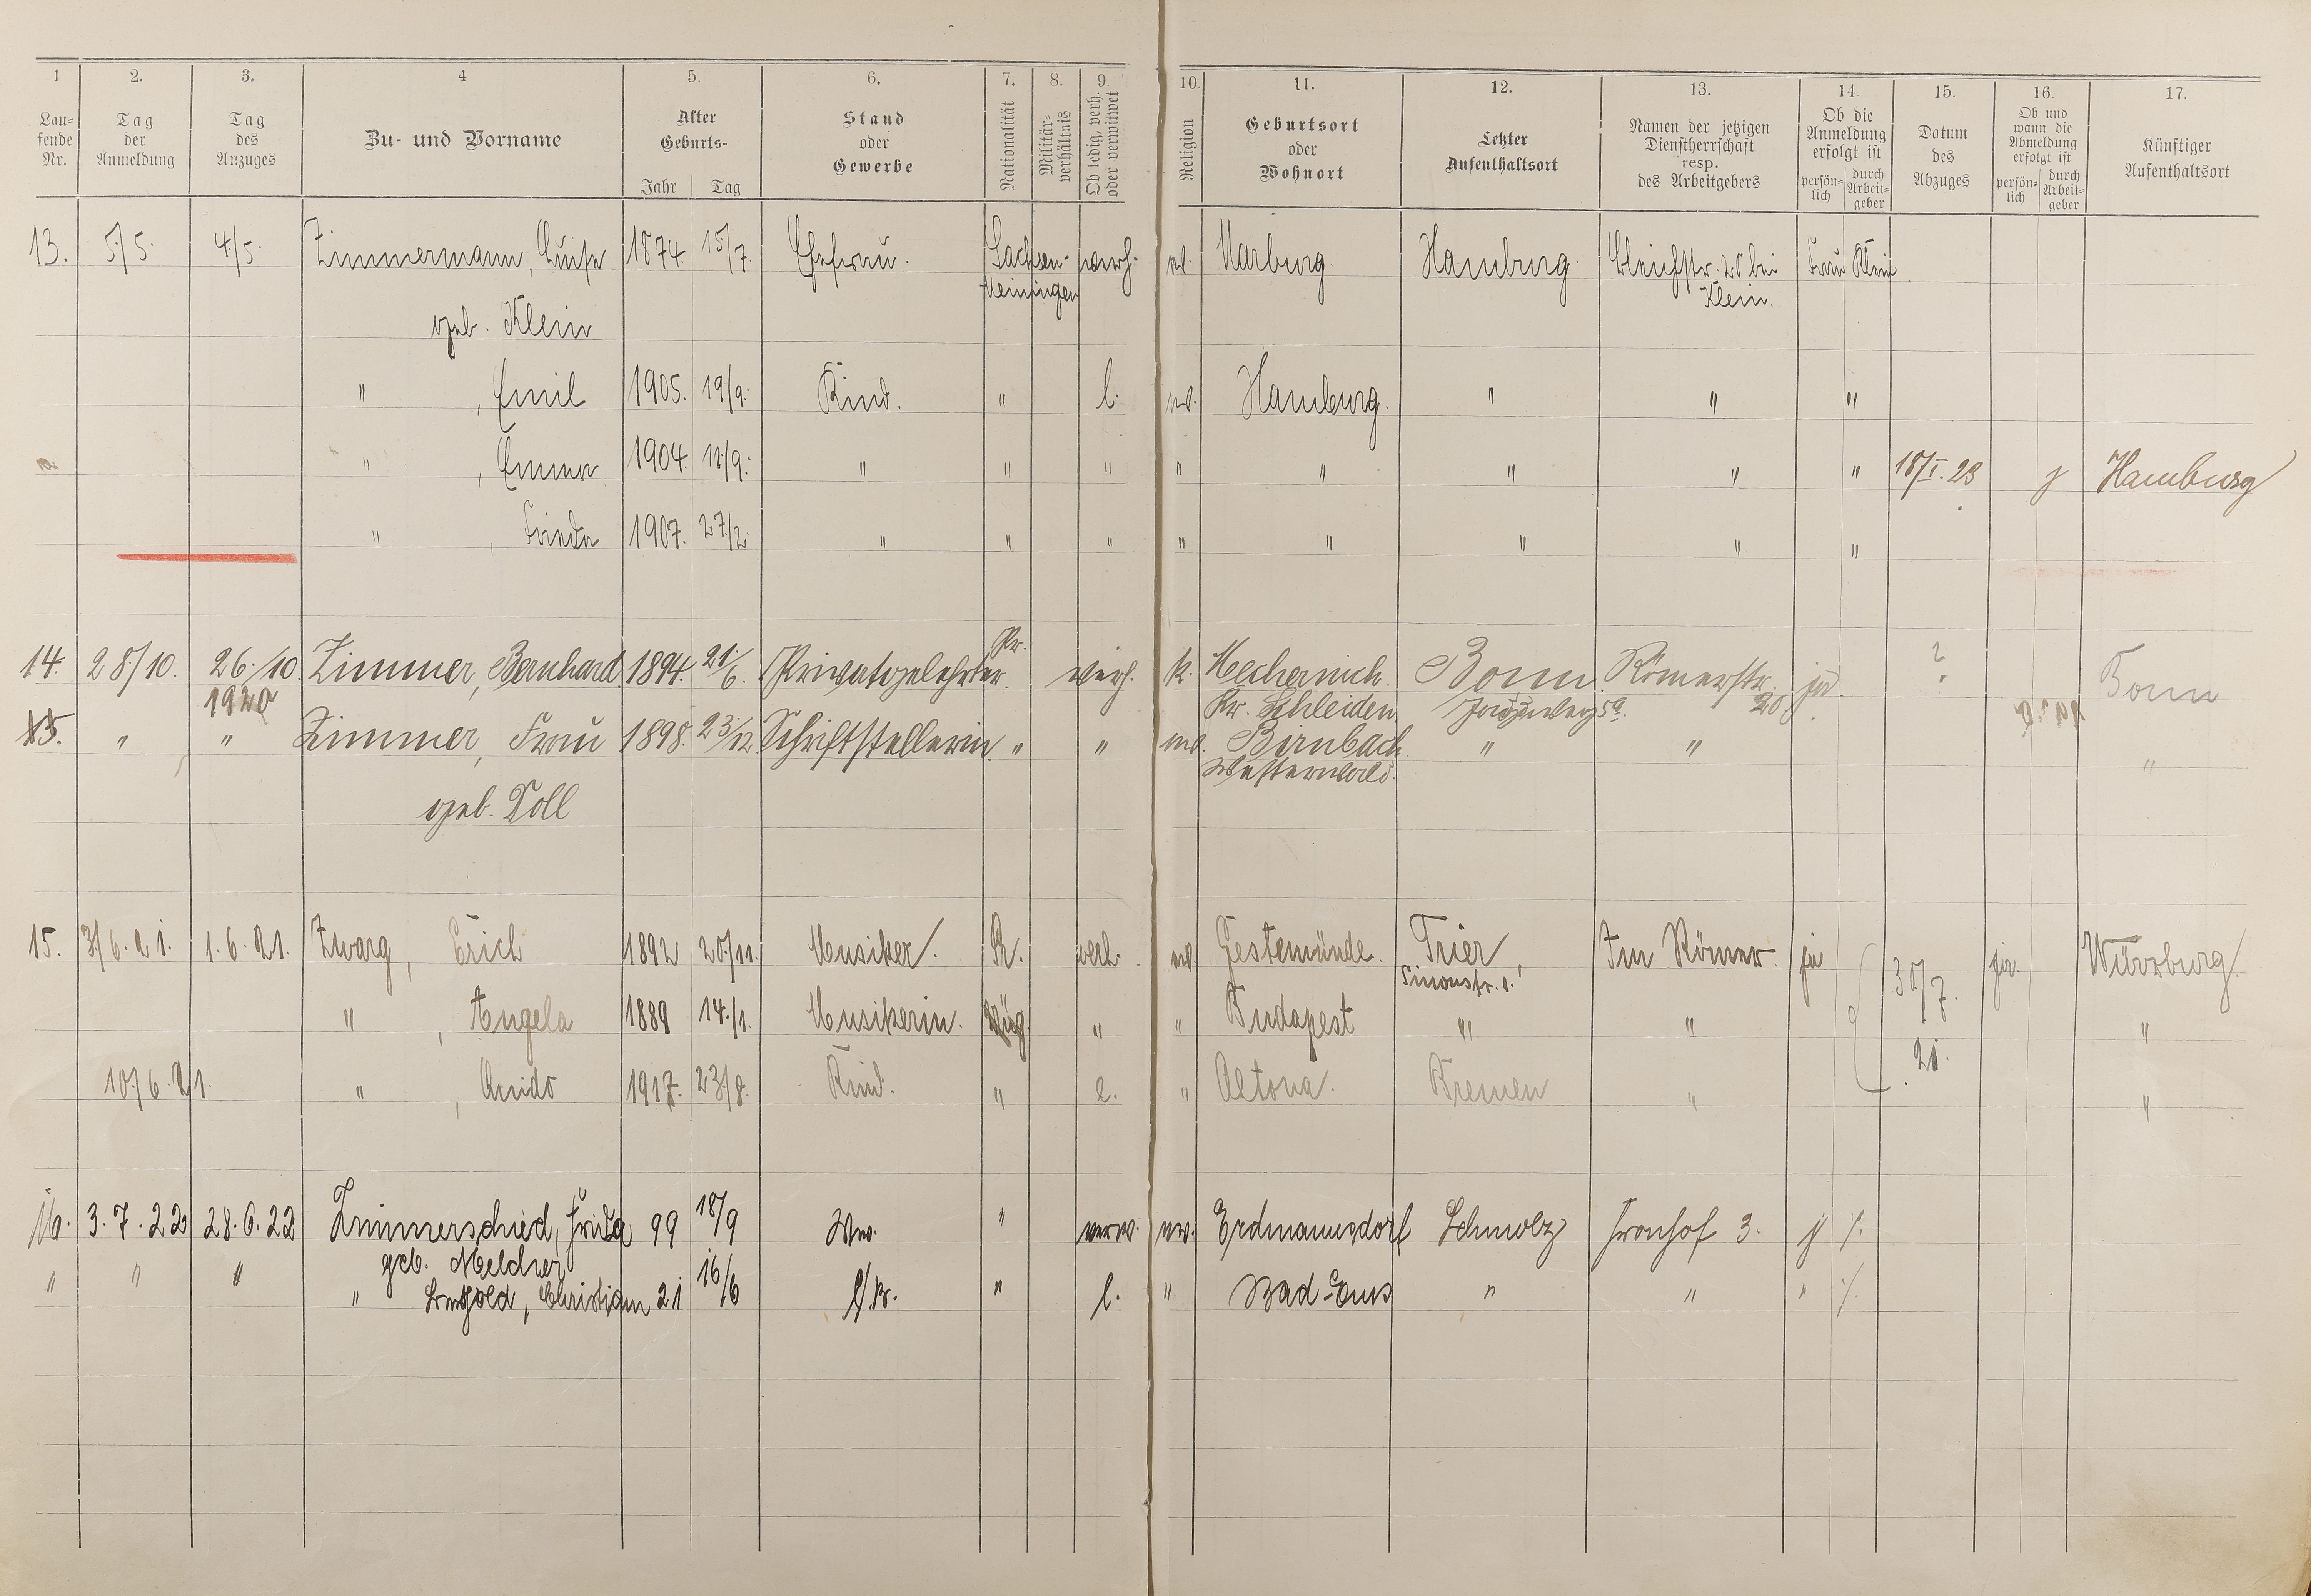 1 2. 3. 4 5. 6. 7. 8. 9. 10. 11. 12. 13. 14. 15. 16. 17.
Lau-fende Nr. Tag der Anmeldung Tag des Anzuges Zu- und Vorname Alter Geburts- Jahr Tag Stand oder Gewerbe Nationalität Militär-verhältnis Ob ledig, verh. oder verwitwet Religion Geburtsort oder Wohnort Letzter Aufenthaltsort Namen der jetzigen Dienstherrschaft resp. des Arbeitgebers Ob die Anmeldung erfolgt ist persön-lich durch Arbeit-geber Dotum des Abzuges Ob und wann die Abmeldung erfolgt ist persön-lich durch Arbeit-geber Künftiger Aufenthaltsort
13. 5/5. 4/5. Zimmermann, Luise 1874. 15/7. Ehefrau. Sachsen- verh. ev. Marburg Hamburg. Bleichstr. 20 bei Frau Klein
Meiningen Klein.
geb. Klein
" , Emil 1905. 19/9. Kind. " l. ev. Hamburg. " " "
" , Emma 1904. 11/9. " " " " " " " " 18/I.23 j Hamburg
" , Frieda 1907. 27/2. " " " " " " " "
14. 28./10. 26./10 Zimmer, Bernhard. 1894. 21./6. Privatgelehrter. Pr. verh. k. Mechernich Bonn. Römerstr. ja. ? Bonn
1920 Kr. Schleiden 5a. 20
15. " " Zimmer, Frau 1898. 23/12. Schriftstellerin. " " ev. Birnbach " " "
Westerwald.
geb. Doll
15. 3/6.21. 1.6.21. Zwarg, Erich 1892 20/11. Musiker. verh. ev. Gestemünde. Trier Im Römer. ja 30/7. ja. Würzburg.
Simonstr. 1.
" , Angela 1889 14./1. Musikerin. " " Budapest " " "
21.
10/6.21. " , Guido 1917. 23/8. Kind. " l. " Altona. Bremen " "
16. 3.7.22 28.6.22 Zimmerschied, Frida 99 18/9 Wwe. " verw. ev. Erdmannsdorf Schmolz Fronhof 3. j /.
geb. Meldner
" " " " , Christian 21 16/6 " l. " Bad-Ems " " " /.